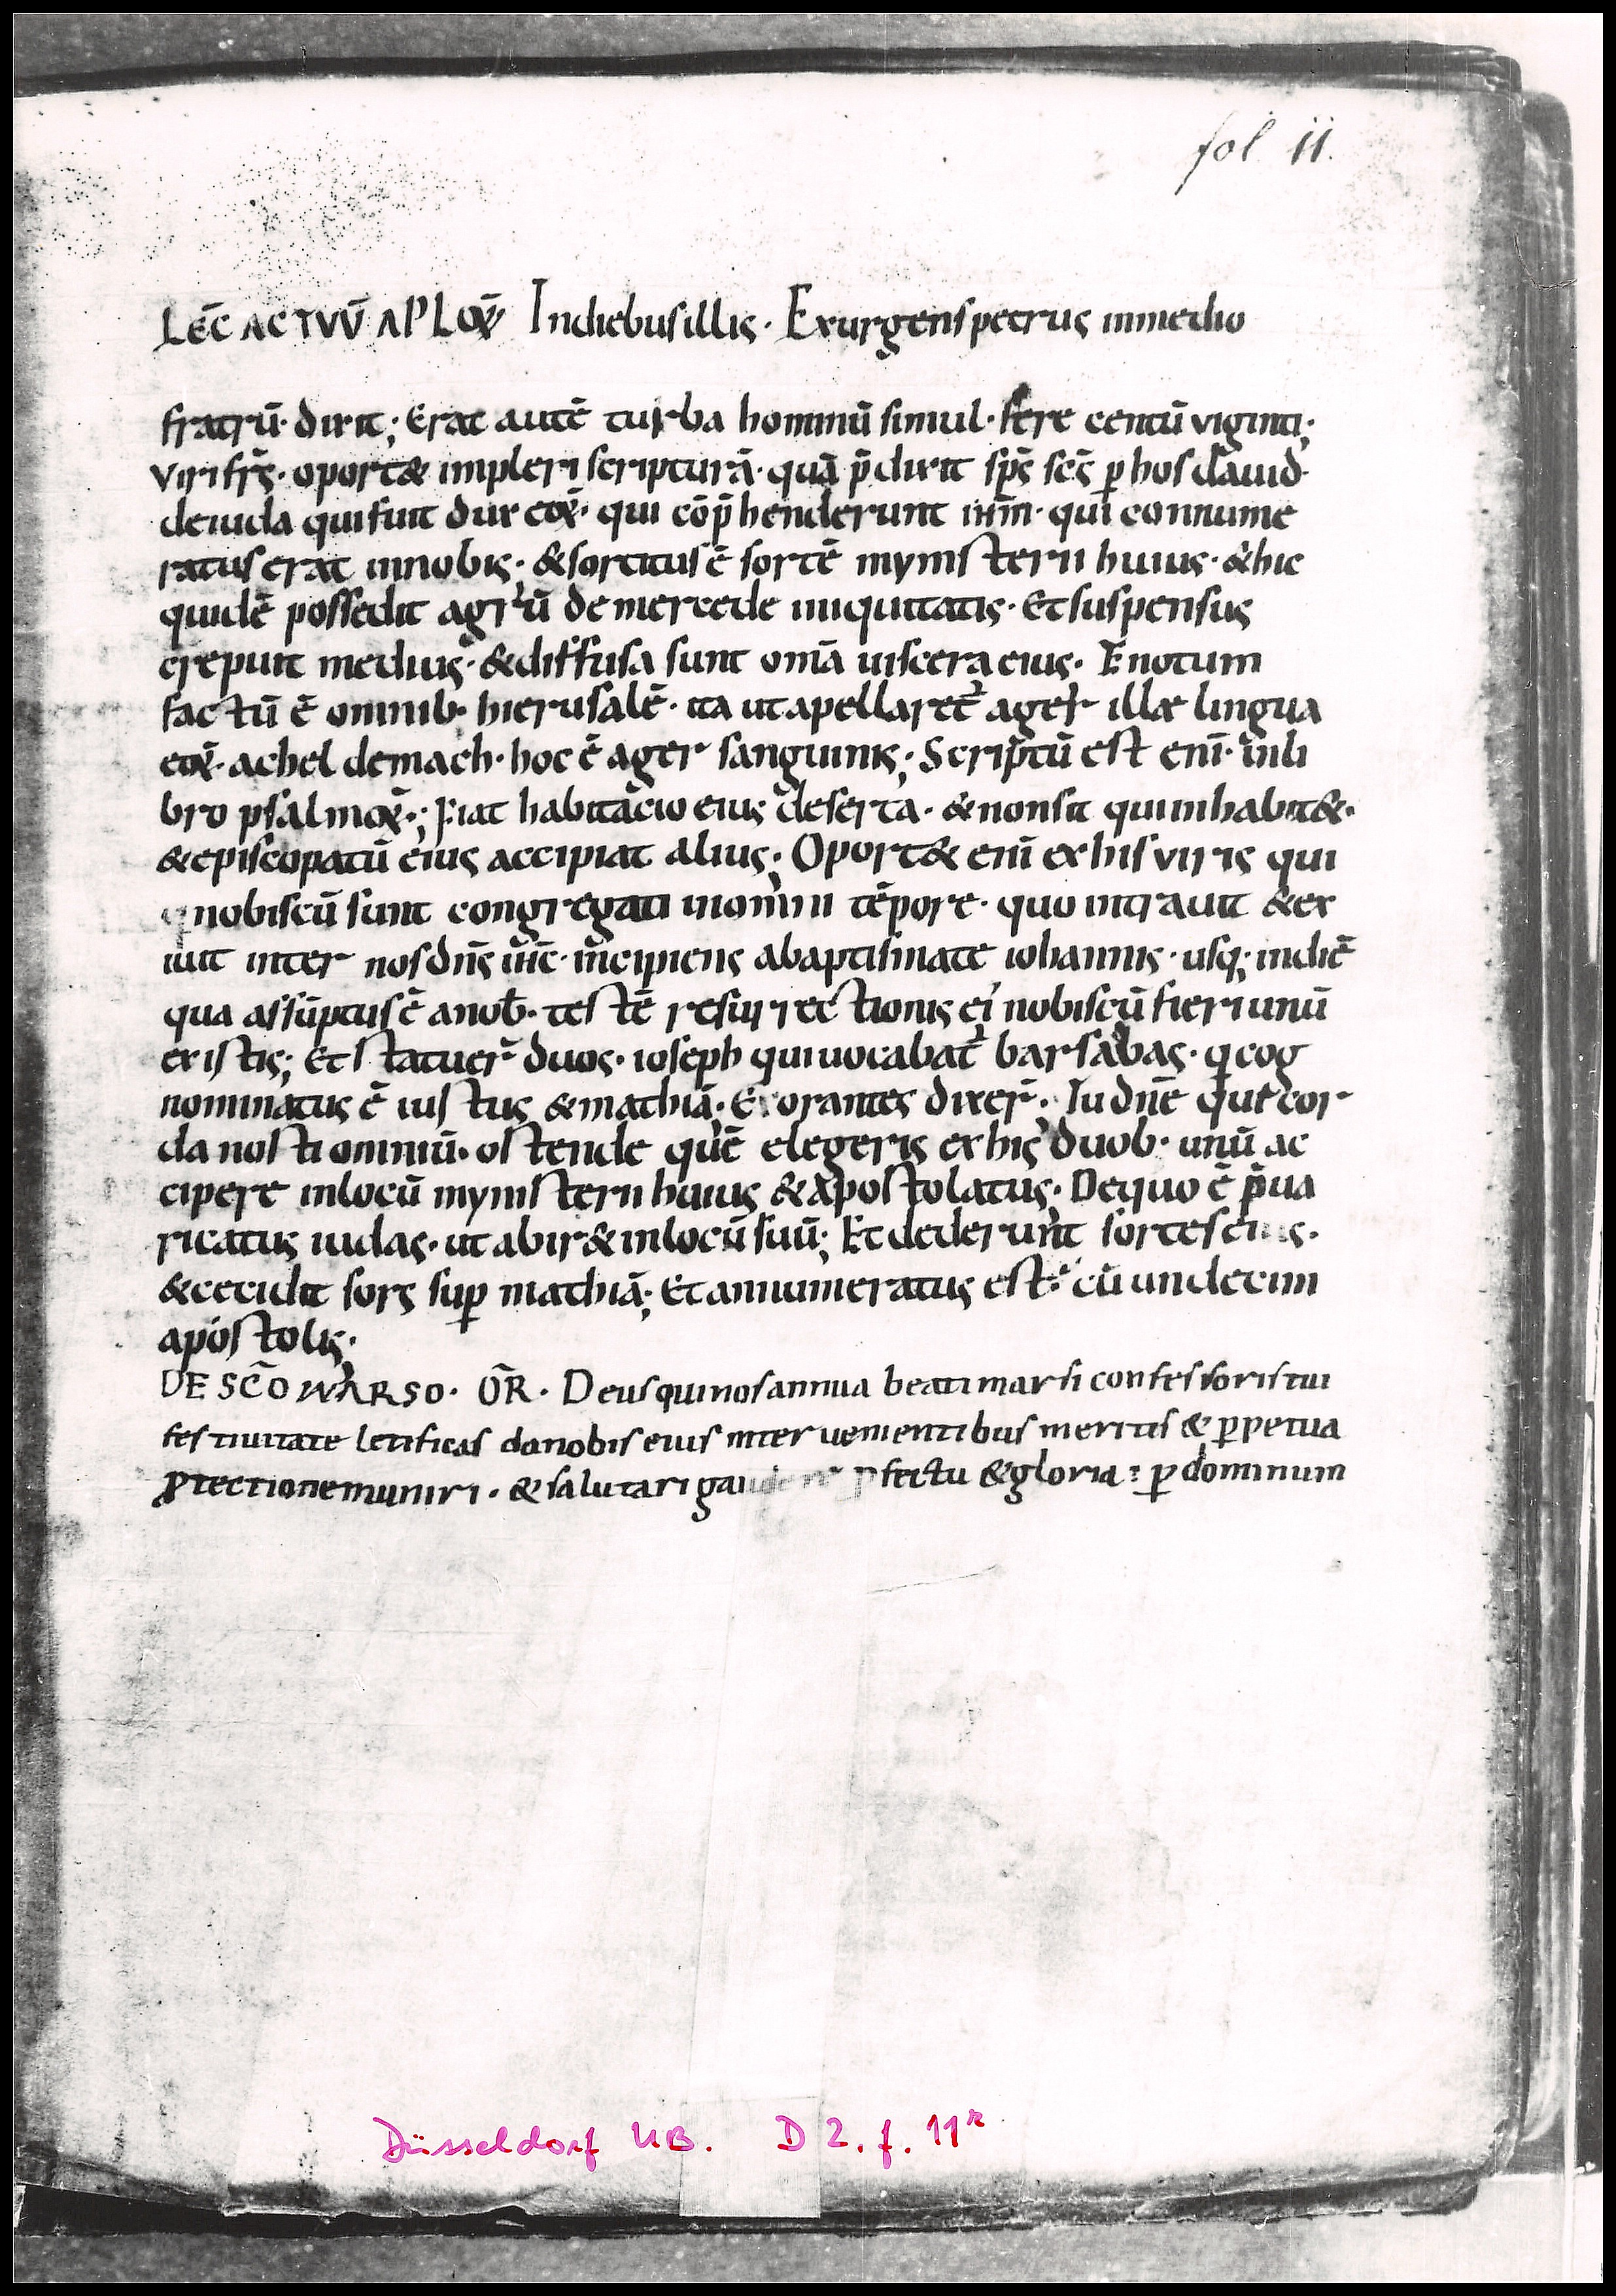 fol 11.
LEC̄ ACTVV̄ APLOꝜ Indiebusillis · Exurgenspetrus inmedio
fratrū · dixit ; Erat autē turba hominū simul · fere centū viginti ;
viri fr̄s · oport& impleri scripturā · quā p̄dixit sp̄s sc̄s ꝑ hos dauid ·
deiuda quifuit dux eoꝝ · qui cōp̄henderunt ihm̄ · qui connume
ratus erat innobis ; &sortitus ē sortē mynisterii huius · &hic
quidē possedit agrū de mercede iniquitatis · Et suspensus
crepuit medius · &diffusa sunt om̄a uiscera eius · E notum
factū ē omnib · hierusalē · ita ut apellaret᷑ ager illæ lingua
eoꝝ · achel demach · hoc ē ager sanguinis ; Scriptū est enī · inli
bro psalmoꝝ · ; Fiat habitacio eius deserta · & nonsit quiinhabit& ·
&episcopatū eius accipiat alius ; Oport& enī exhis viris qui
nobiscū sunt congregati inomni tēpore · quo intrauit &ex
iuit inter nos dn̄s ih̄c · incipiens abaptismate iohannis · usq; indiē
qua assūptus ē anob̄ · testē resurrectionis ei nobiscū fieri unū
existis ; Et statuer̄ duos · ioseph quiuocabat᷑ barsabas · q cog
nominatus ē iustus &mathiā · Et orantes dixer̄ · Tu dn̄e qui cor
da nosti omniū · ostende quē elegeris exhis duob · unū ac
cipere inlocū mynisterii huius &apostolatus ; Dequo ē p̄ua
ricatus iudas · ut abir& inlocū suū ; Et dederunt sortes eius ·
&cecidit sors suꝑ mathiā ; Et annumeratus est · cū undecim
apostolis ;
DE SC̄O MARSO · OR̄ · Deus quinos annua beati marsi confessoris tui
festiuitate letificas da nobis eius interuenientibus meritis & ꝑpetua
ꝓtectione muniri · & salutari gaudere ꝓfectu &gloria : ꝑ dominum
Düsseldorf UB. D 2. f. 11r